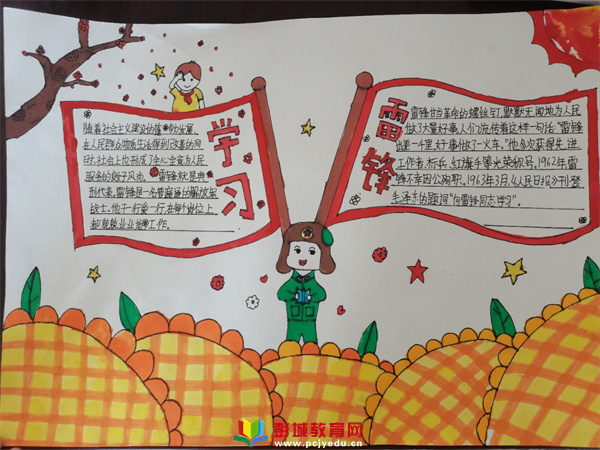 学习
随着社会主义建设的蓬勃发展,
在人民群众物质生活得到改善的同
时,社会上也形成了全心全意为人民
服务的好风尚。雷锋就是典
型代表,雷锋是一名普通的解放军
战士,他干一行爱一行,在每个岗位上
都兢兢业业地工作。
雷锋
雷锋甘当革命的螺丝钉,默默无闻地为人民
做了大量好事,人们流传着这样一句话:“雷锋
出差一千里,好事做了一火车。”他多次获得先进
工作者,标兵,红旗手等光荣称号,1962年,雷
锋不幸因公殉职。1963年3月,《人民日报》刊登
毛泽东的题词“向雷锋同志学习”。
彭城教育网
www.pcjyedu.cn